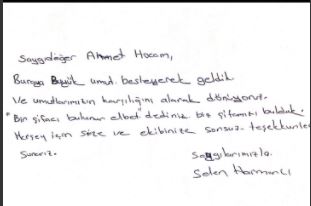 Saygıdeğer Ahmet Hocam,
Buraya Büyük umut besleyerek geldik
Ve umutlarımızın karşılığını alarak dönüyoruz.
"Bir şifacı bulunur elbet" dediniz biz şifamızı bulduk.
Herşey için size ve ekibinize sonsuz teşekkürler
Sunarız.
Saygılarımızla.
Selen Harmancı